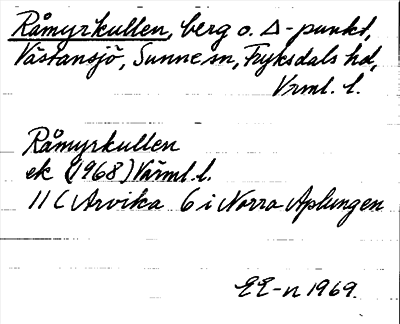 Råmyrkullen, berg o. Δ-punkt,
Västansjö, Sunne sn, Fryksdals hd,
Vrml. l.
Råmyrkullen
ek (1968) Värml. l.
11 C Arvika 6 i Norra Aplungen
EE-n 1969.